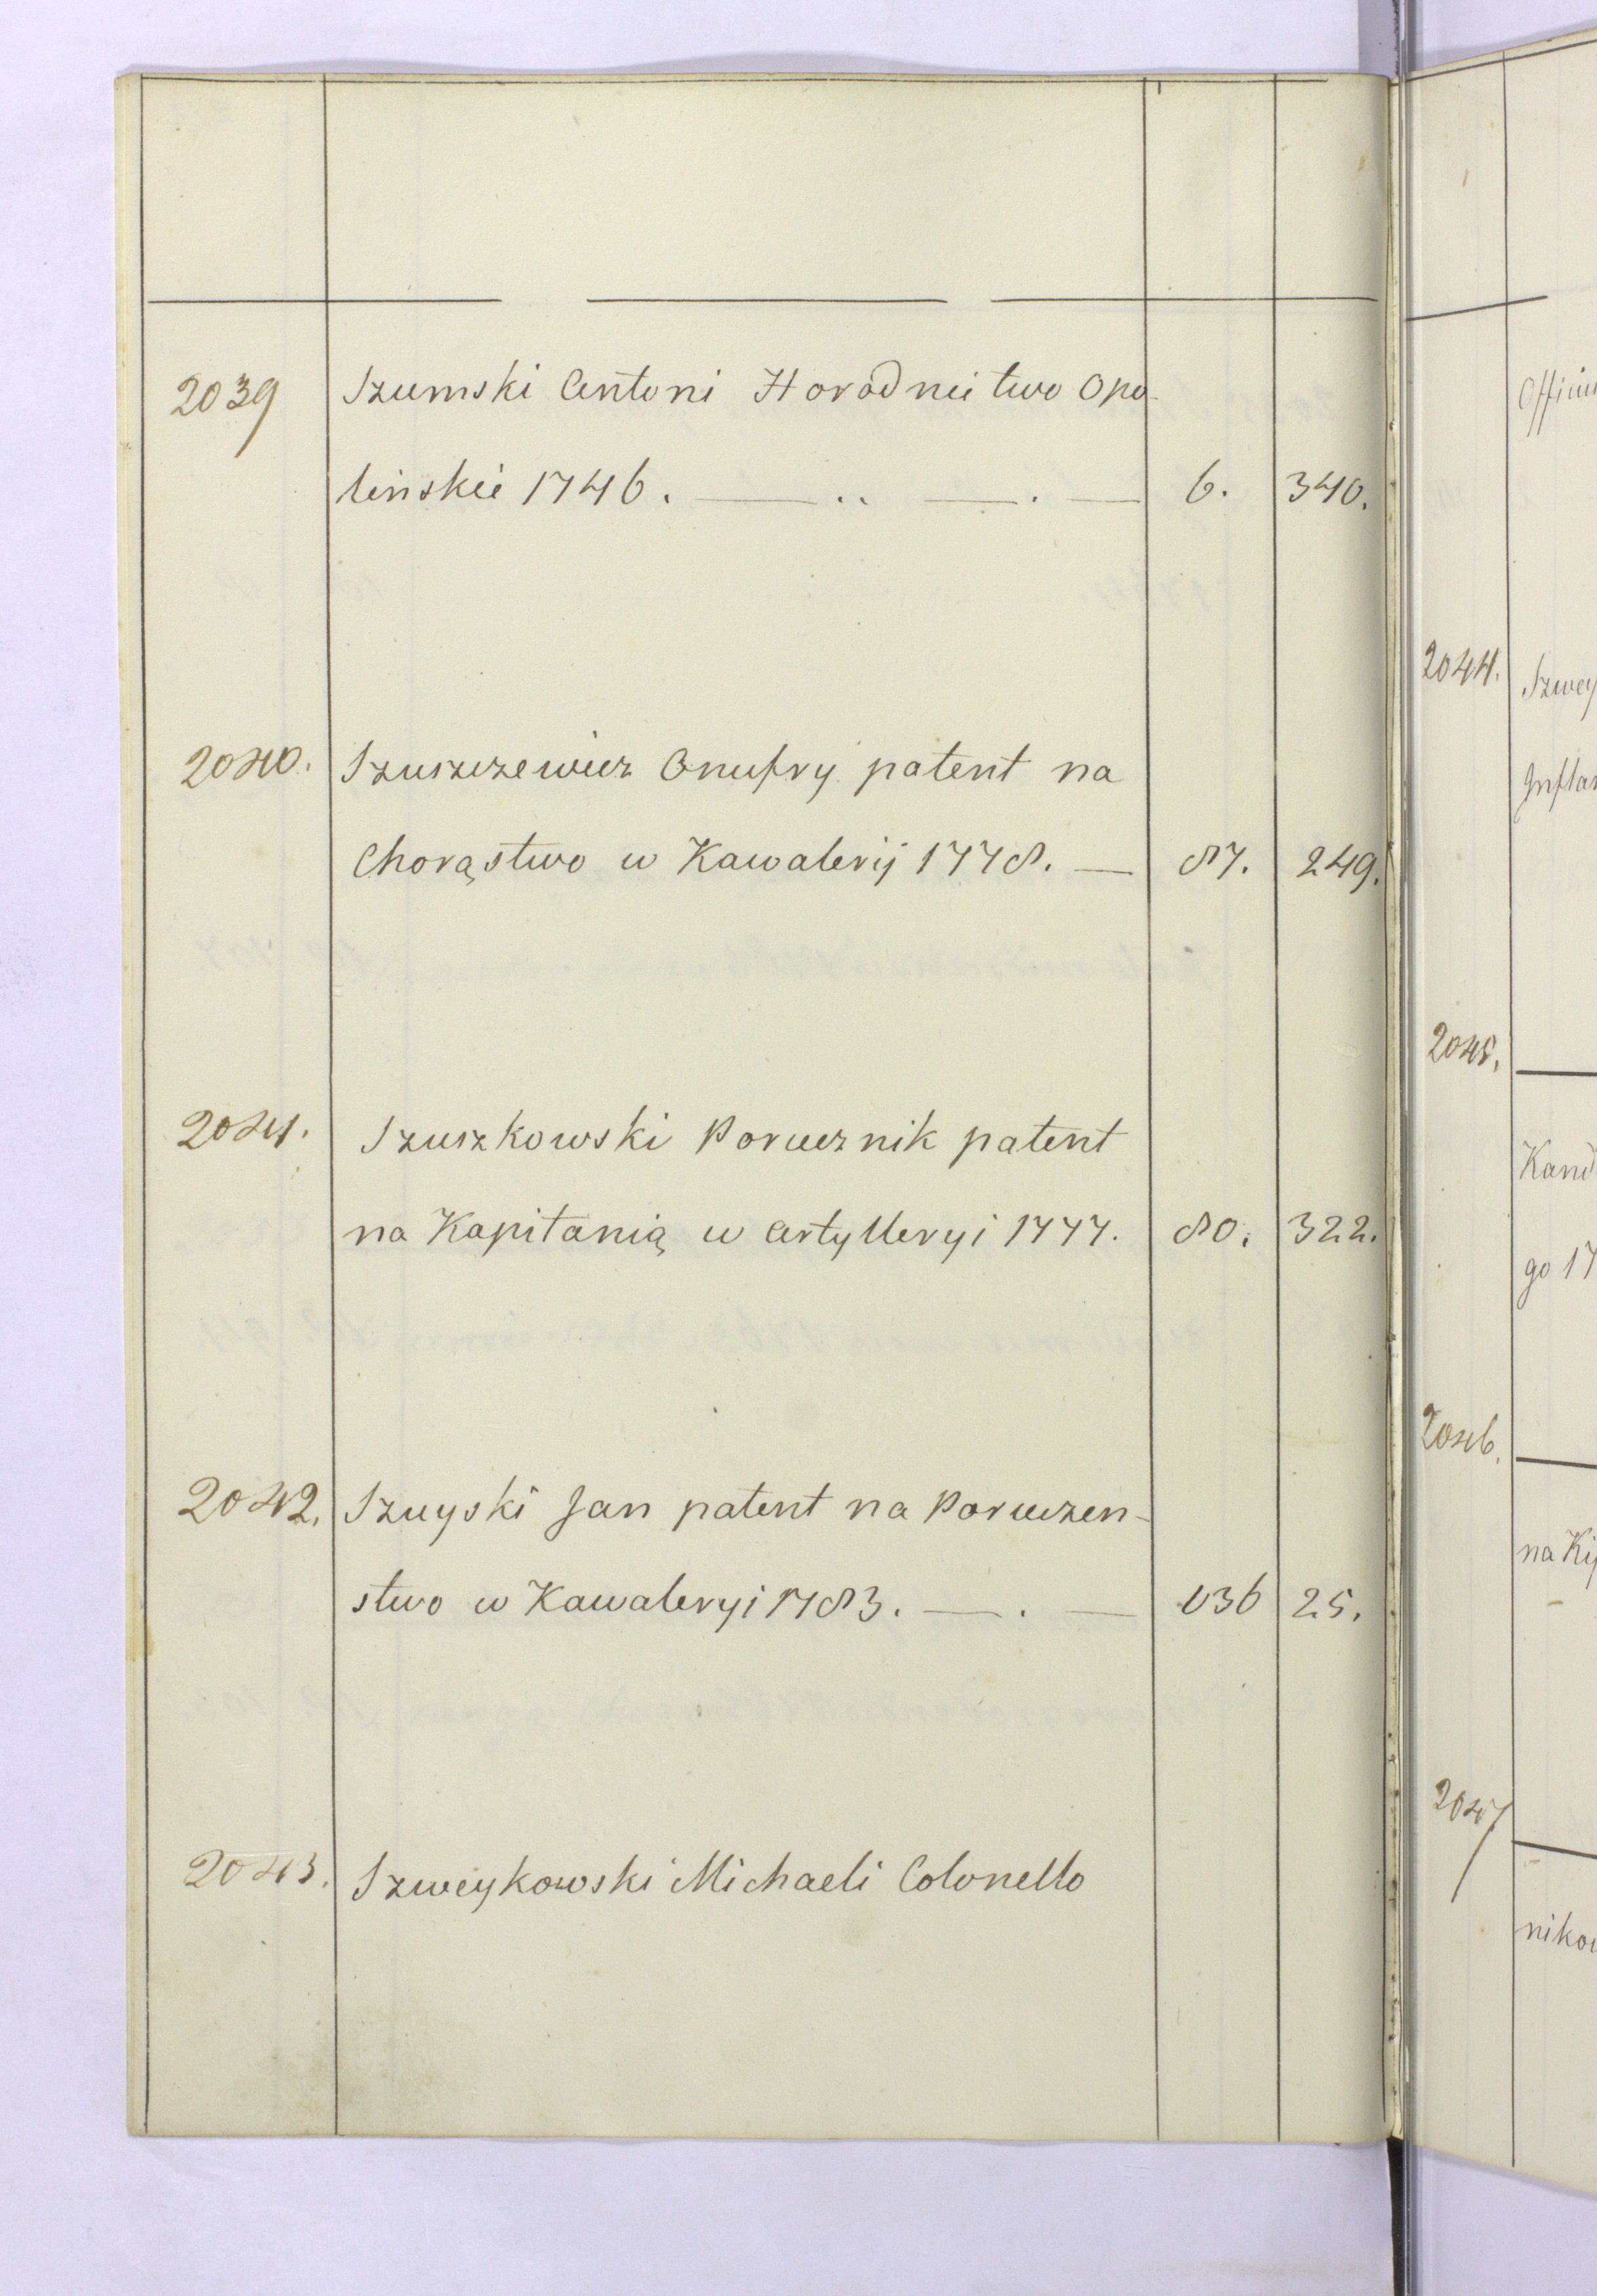 2039 Szumski Antoni Horodnictwo Opo-
linskie 1746. 6. 340.
2040. Szuszczewicz Onufry patent na
Chorąstwo w Kawaleryj 1778. 87. 249.
2041. Szuszkowski Porucznik patent
na Kapitanią w Artylleryi 1777. 80. 322.
2042. Szuyski Jan patent na Poruczen-
stwo w Kawaleryi 1783. 136 25.
2043. Szweykowski Michaeli Colonello
2044. Szwey
Inflan
2045.
Kand
go 17
2046.
na Ki
2047